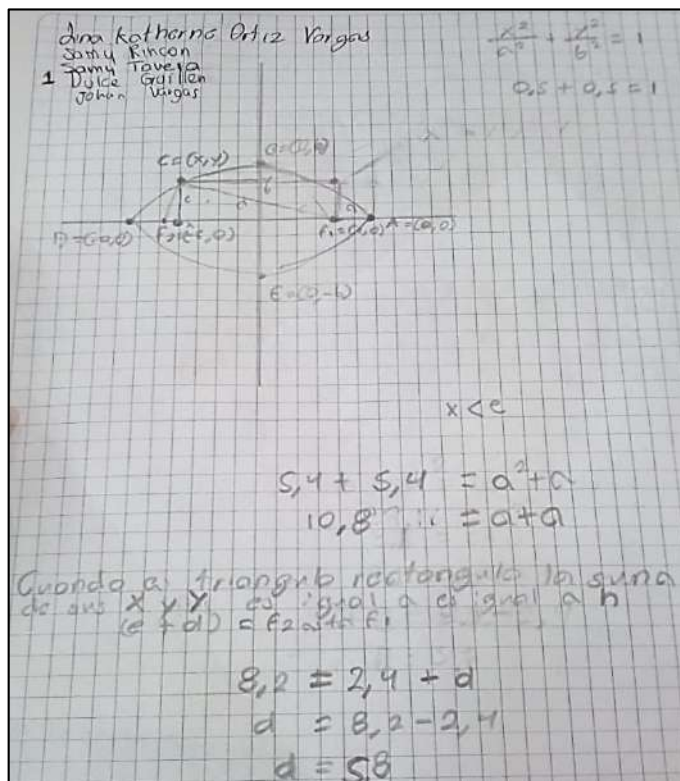 dina Katherne Ortiz Vargas
Samy Rincon
Samy Tavera
1 Dulce Guillen
Johan Vargas
x²/a² + y²/b² = 1
0,5 + 0,5 = 1
C=(x,y)
b
c
d
a
F2=(-c,0)
A=(a,0)
E=(0,-b)
x < c
5,4 + 5,4 = a²+a
10,8 = a+a
Cuando a triangulo rectangulo la suma
de sus x y y es igual a es igual a h
8,2 = 2,4 + d
d = 8,2 - 2,4
d = 58